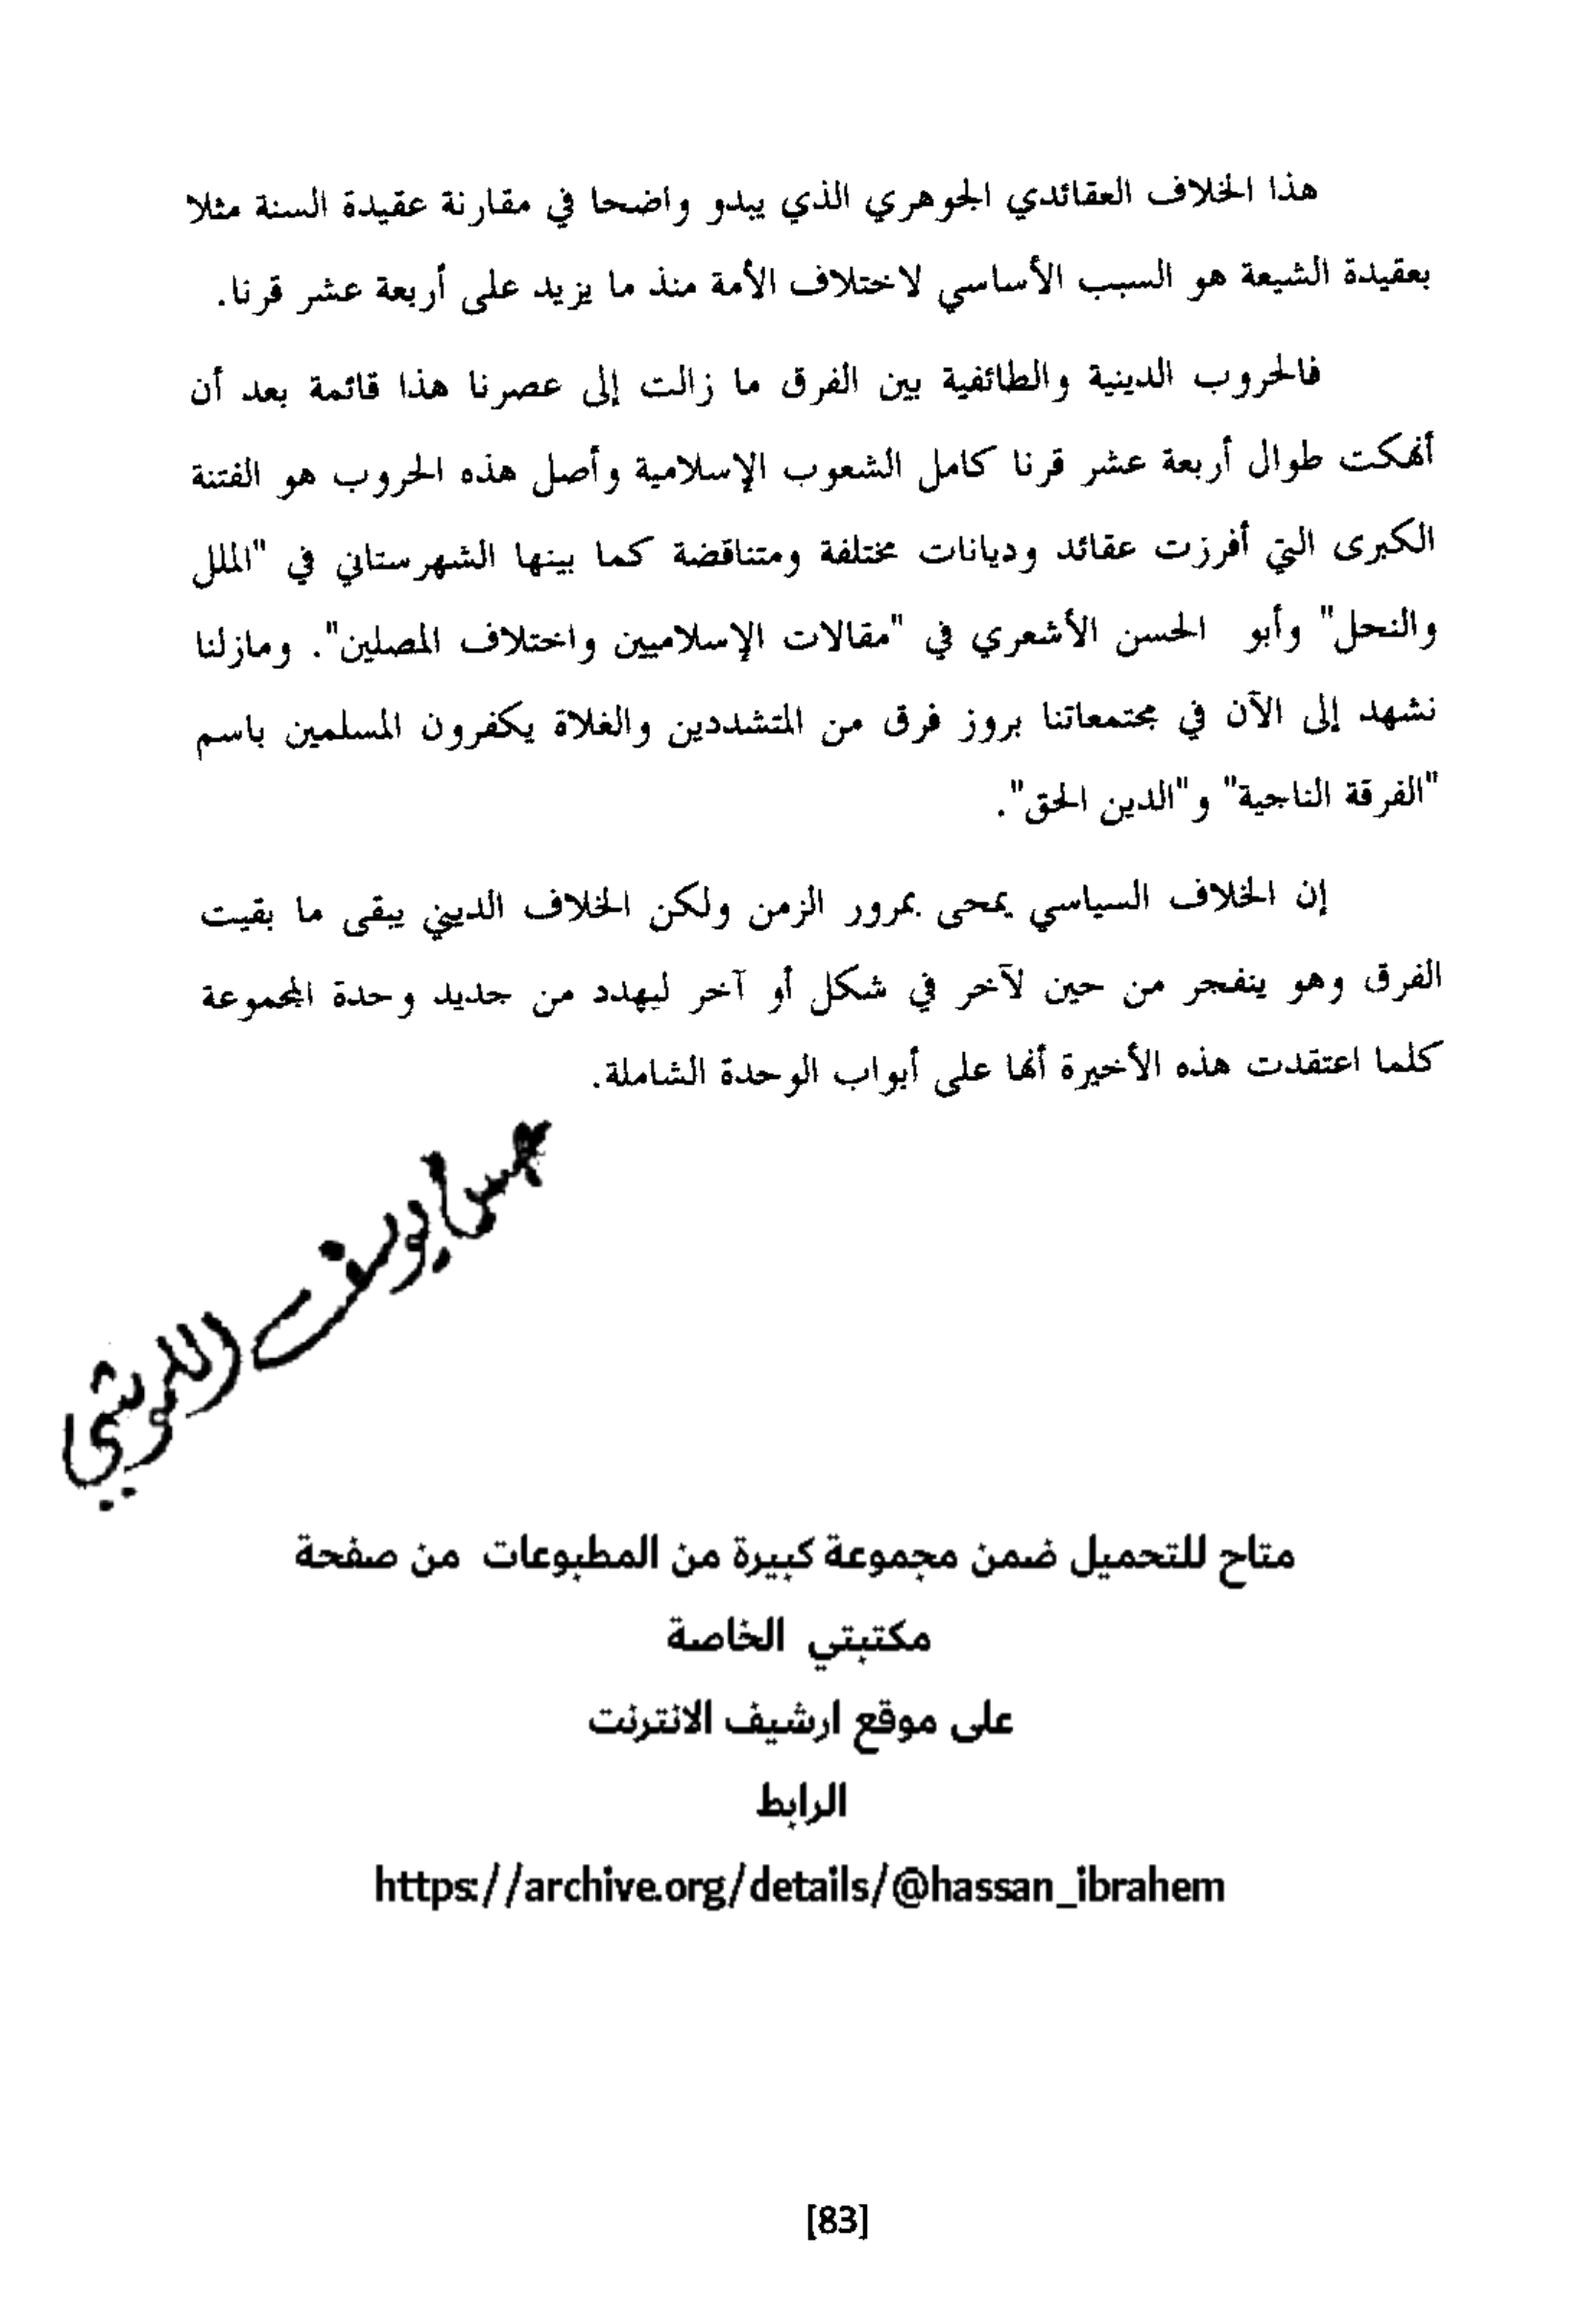 هذا الخلاف العقائدي الجوهري الذي يبدو واضحا في مقارنة عقيدة السنة مثلا
بعقيدة الشيعة هو السبب الأساسي لاختلاف الأمة منذ ما يزيد على أربعة عشر قرنا.
فالحروب الدينية والطائفية بين الفرق ما زالت إلى عصرنا هذا قائمة بعد أن
أنهكت طوال أربعة عشر قرنا كامل الشعوب الإسلامية وأصل هذه الحروب هو الفتنة
الكبرى التي أفرزت عقائد وديانات مختلفة ومتناقضة كما بينها الشهرستاني في "الملل
والنحل" وأبو الحسن الأشعري في "مقالات الإسلاميين واختلاف المصلين". ومازلنا
نشهد إلى الآن في مجتمعاتنا بروز فرق من المتشددين والغلاة يكفرون المسلمين باسم
"الفرقة الناجية" و"الدين الحق".
إن الخلاف السياسي يمحى بمرور الزمن ولكن الخلاف الديني يبقى ما بقيت
الفرق وهو ينفجر من حين لآخر في شكل أو آخر ليهدد من جديد وحدة المجموعة
كلما اعتقدت هذه الأخيرة أنها على أبواب الوحدة الشاملة.
متاح للتحميل ضمن مجموعة كبيرة من المطبوعات من صفحة
مكتبتي الخاصة
على موقع ارشيف الانترنت
الرابط
https://archive.org/details/@hassan_ibrahem
[83]